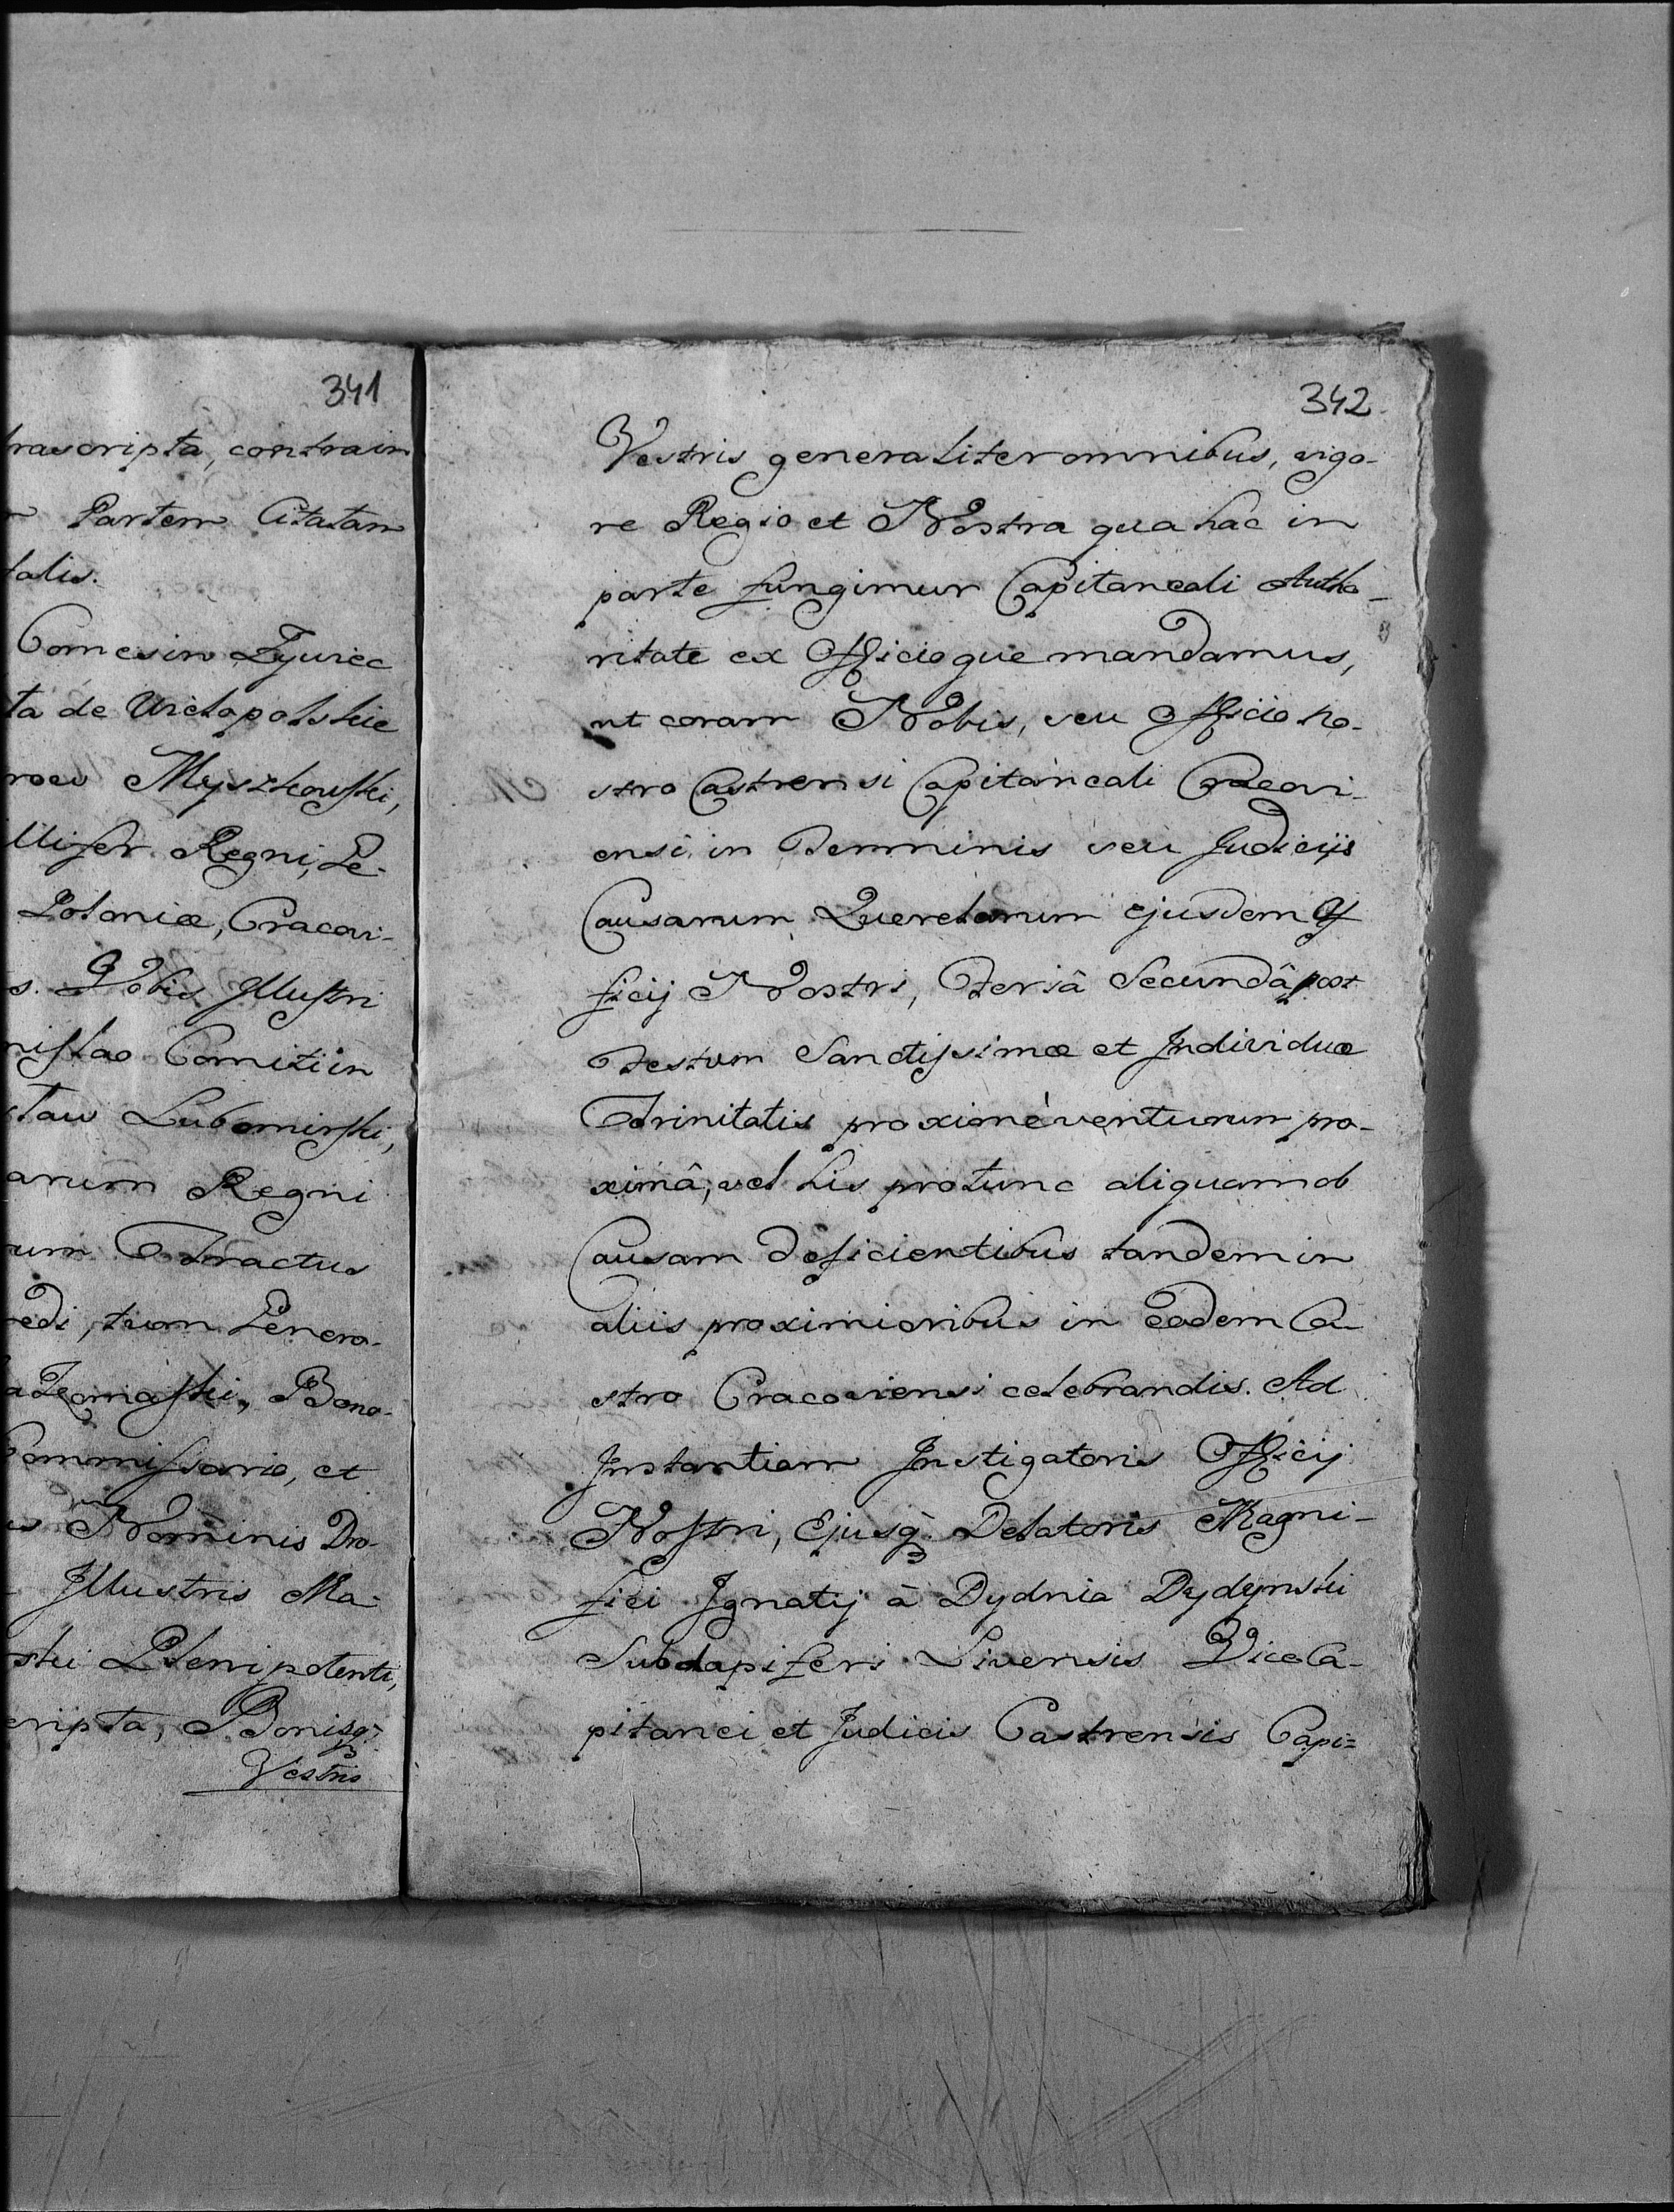 341
trascripta, contrain
Partem Citatam
talis.
Comes in Żywiec
ta de Wielopolskie
Myszkowski,
Regni, Ge-
Poloniæ, Cracovi-
s. Vobis Illustri
nislao Comiti in
slaw Lubomirski,
arum Regni
rum Tractus
redi, tum Genero-
Bono-
Commissario, et
Nominis Do-
Illustris Ma-
ski Plenipotenti,
cripta, Bonisq;
Vestris
342
Vestris generaliter omnibus, vigo-
re Regio et Nostra qua hac in
parte fungimur Capitaneali Autho-
ritate ex Officioque mandamus,
ut coram Nobis, seu Officio no-
stro Castrensi Capitaneali Cracovi-
ensi in Terminis seu Judicijs
Causarum Querelarum ejusdem Of
ficij Nostri, Feriâ Secundâ post
Festum Sanctissimæ et Individuæ
Trinitatis proximè venturum pro-
ximâ, vel his protunc aliquam ob
Causam deficientibus tandem in
aliis proximioribus in eodem Ca-
stro Cracoviensi celebrandis. Ad
Instantiam Instigatoris Officij
Nostri, Ejusq; Delatoris Magni-
fici Ignatij à Dydnia Dydyński
Subdapiferi Livensis Vice Ca-
pitanei et Judicis Castrensis Capi=